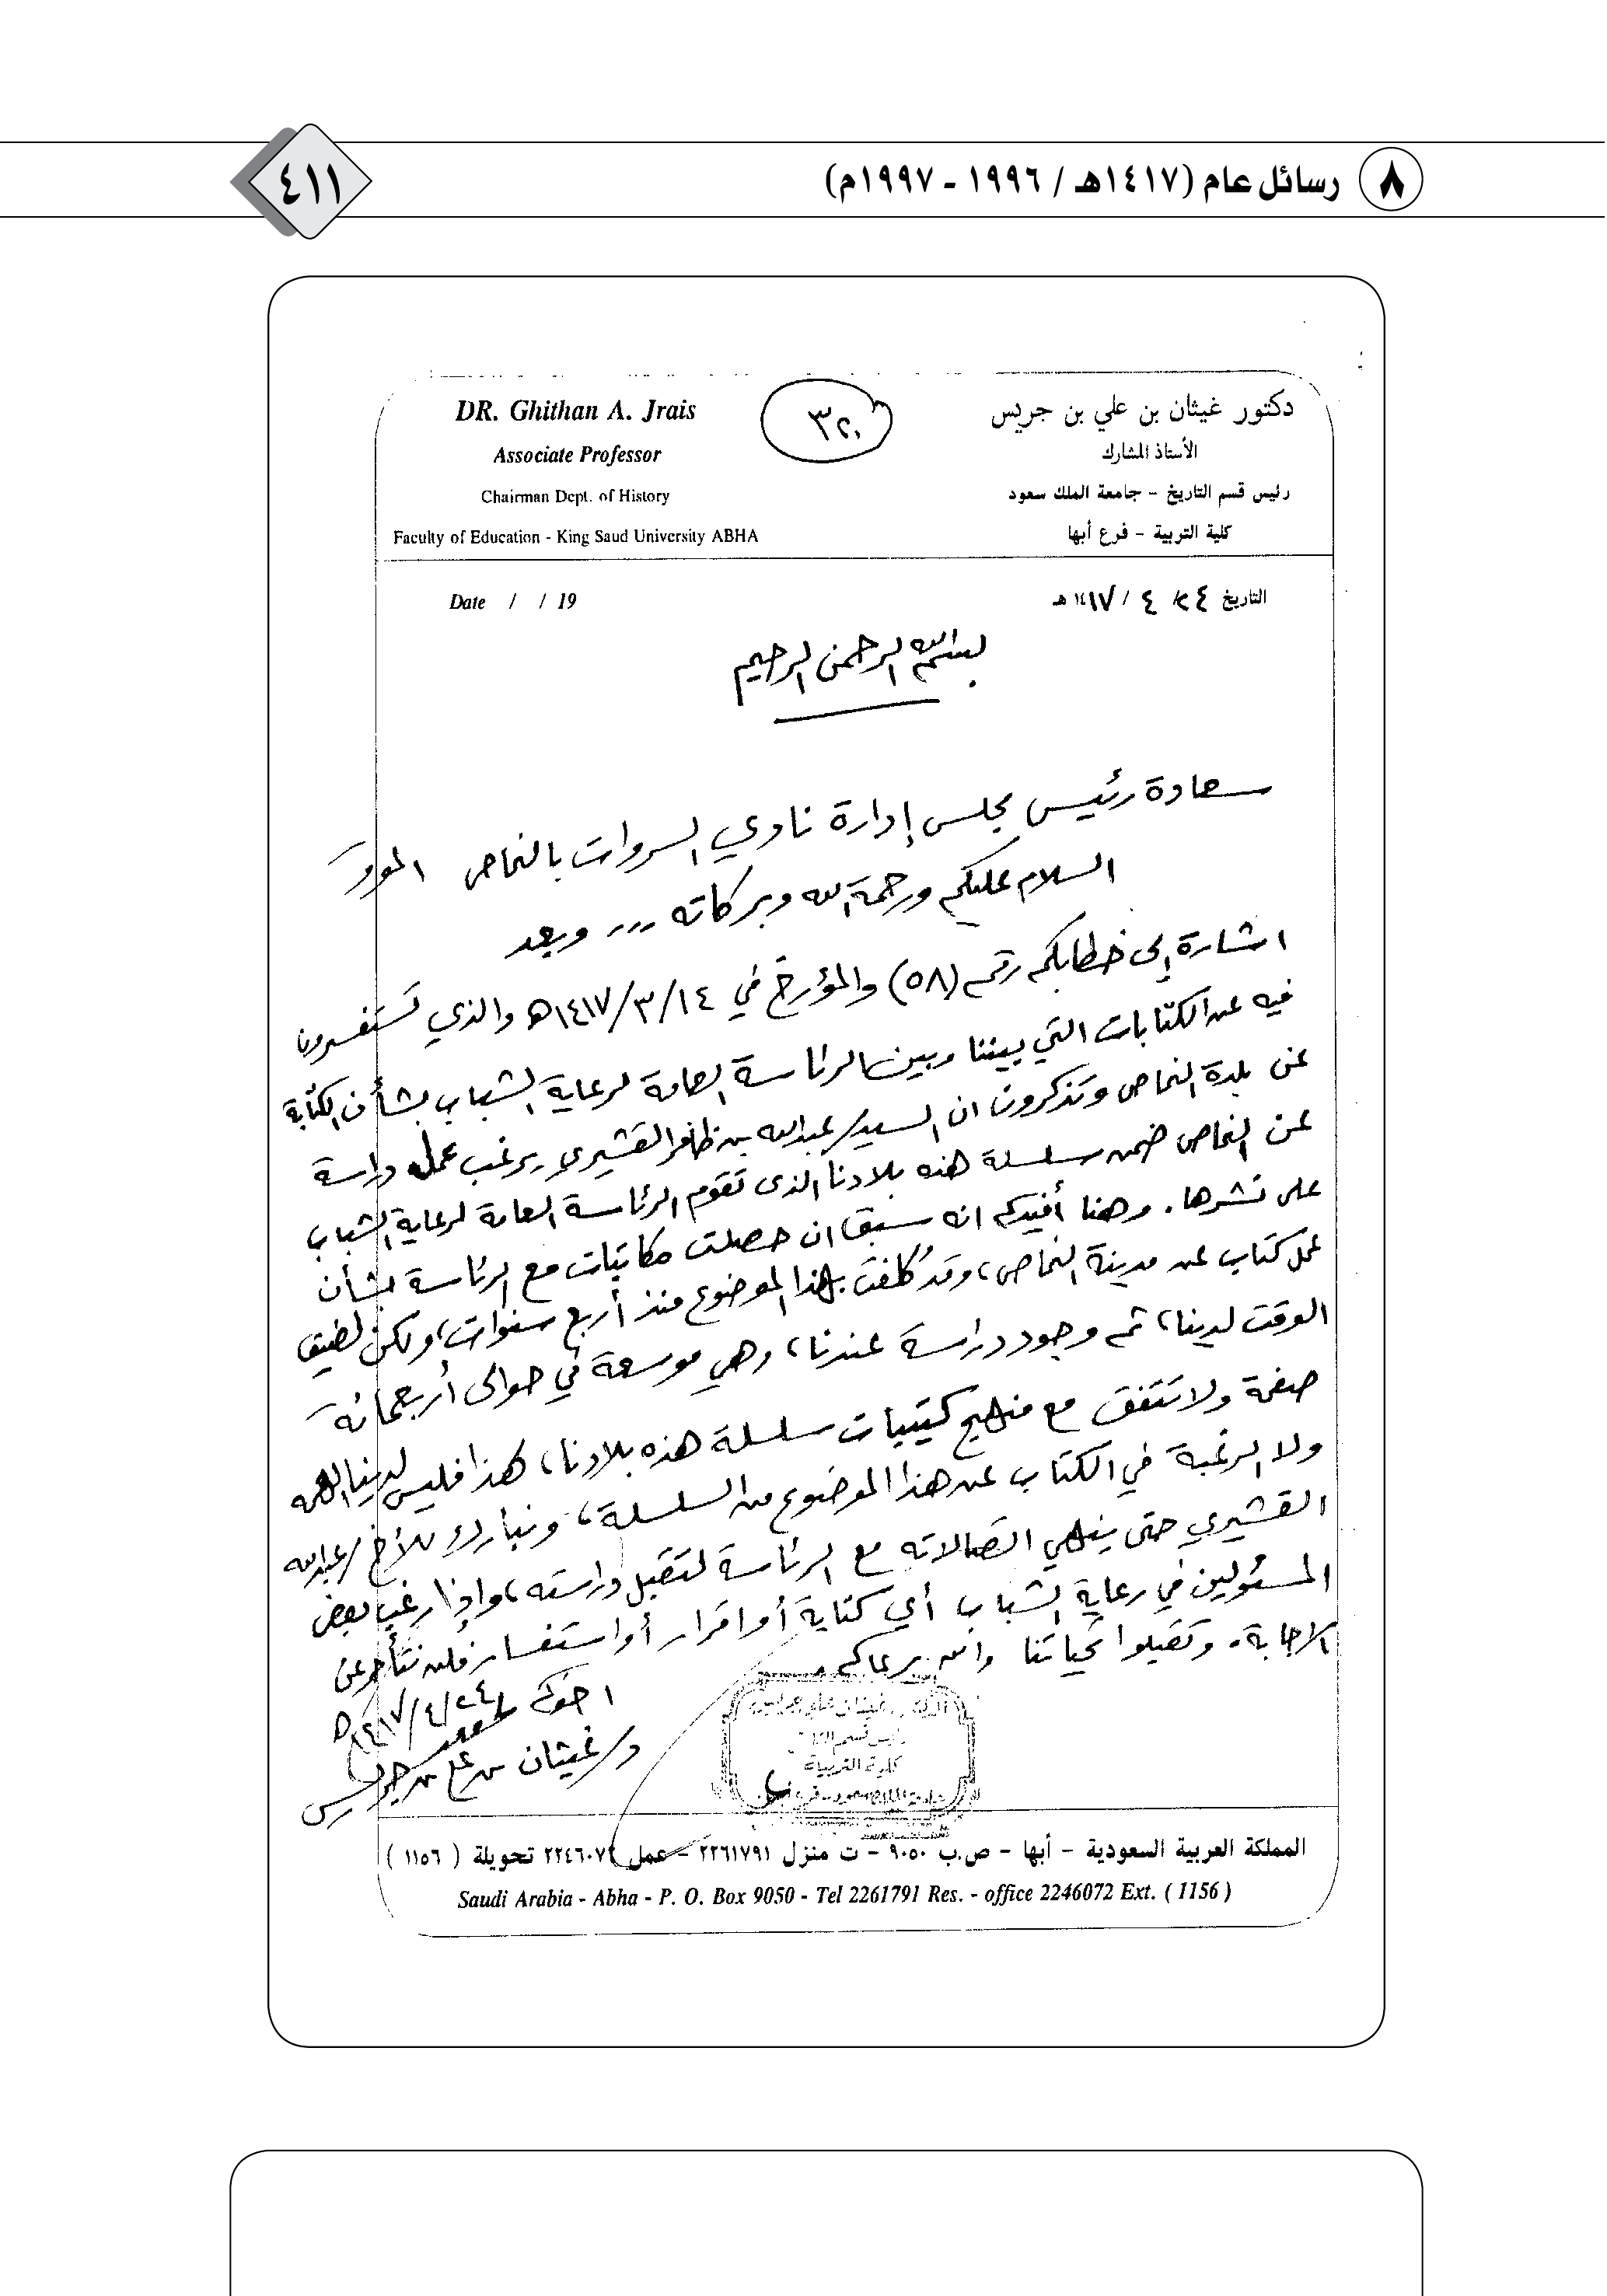 ٨ رسائل عام (١٤١٧هـ / ١٩٩٦ - ١٩٩٧م)
٤١١
دكتور غيثان بن علي بن جريس
الأستاذ المشارك
رئيس قسم التاريخ - جامعة الملك سعود
كلية التربية - فرع أبها
DR. Ghithan A. Jrais
Associate Professor
Chairman Dept. of History
Faculty of Education - King Saud University ABHA
التاريخ ٢٤ / ٤ / ١٤١٧ هـ
Date / / 19
بسم الله الرحمن الرحيم
سعادة رئيس مجلس إدارة نادي السروات بالنماص الموقر
السلام عليكم ورحمة الله وبركاته ... وبعد
اشارة إلى خطابكم رقم (٥٨) والمؤرخ في ١٤١٧/٣/١٤هـ والذي تستفسرون
فيه عن الكتابات التي بيننا وبين الرئاسة العامة لرعاية الشباب بشأن الكتابة
عن بلدة النماص وتذكرون ان السيد/ عبدالله بن ظافر القشيري يرغب عمل دراسة
عن النماص ضمن سلسلة هذه بلادنا الذى تقوم الرئاسة العامة لرعاية الشباب
على نشرها. وهنا أفيدكم انه سبق ان حصلت مكاتبات مع الرئاسة بشأن
عمل كتاب عن مدينة النماص، وقد كُلفت بهذا الموضوع منذ أربع سنوات، ولكن لضيق
الوقت لدينا، ثم وجود دراسة عندنا، وهي موسعة في حوالى أربعمائة
صفحة ولا تتفق مع منهج كتيبات سلسلة هذه بلادنا، لهذا فليس لدينا الهمه
ولا الرغبة في الكتاب عن هذا الموضوع من السلسلة، ونبارك للأخ/ عبدالله
القشيري حتى ينهي اتصالاته مع الرئاسة لتقبل دراسته، وإذا رغب بعض
المسئولين في رعاية الشباب أي كتابة أو اقرار أو استفسار فلن نتأخر عن
الاجابة. وتقبلوا تحياتنا والله يرعاكم.
اخوكم
١٤١٧/٤/٢٤هـ
د/ غيثان بن علي بن جريس
رئيس قسم
كلية التربية
المملكة العربية السعودية - أبها - ص.ب ٩٠٥٠ - ت منزل ٢٢٦١٧٩١ - عمل ٢٢٤٦٠٧٢ تحويلة ( ١١٥٦ )
Saudi Arabia - Abha - P. O. Box 9050 - Tel 2261791 Res. - office 2246072 Ext. ( 1156 )